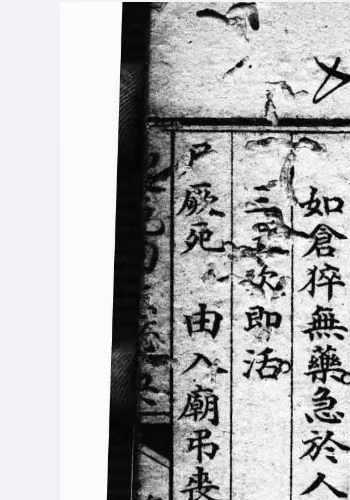 如倉猝無藥急於人
三五次即活
尸厥死 由入廟弔喪